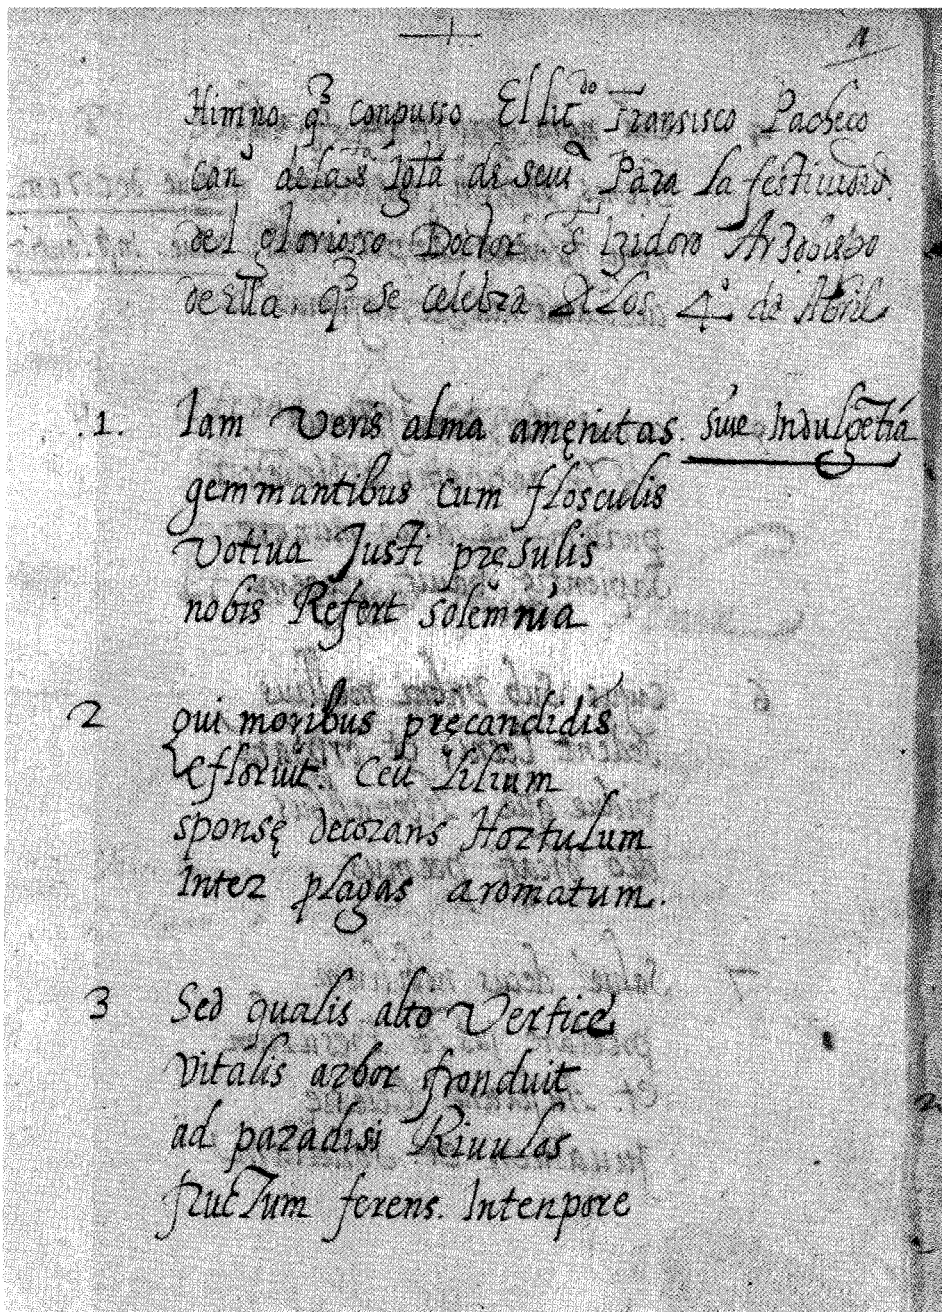 Himno q̃ conpusso El licdo Fransisco Pacheco
can de la sta Iglã de seuã Para la festiuidad
del gloriosso Doctor S Izidoro Arzobispo
de ella q̃ se celebra A los 4º de Abril
.1. Iam Veris alma amęnitas. siue Indulgẽtiá
gemmantibus cum flosculis
Votiua Justi pręsulis
nobis Refert solemnia
2 qui moribus pręcandidis
Efloruit. ceu lilium
sponsę decorans Hortulum
Inter plagas aromatum.
3 Sed qualis alto Vertice
Vitalis arbor fronduit
ad paradisi Riuulos
fructum ferens. Intenpore